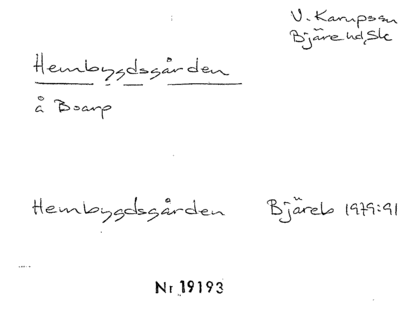 V. Karupssn
Bjäre hd, Sk
Hembygdsgården
å Boarp
Hembygdsgården Bjäreb 1979:91
Nr 19193